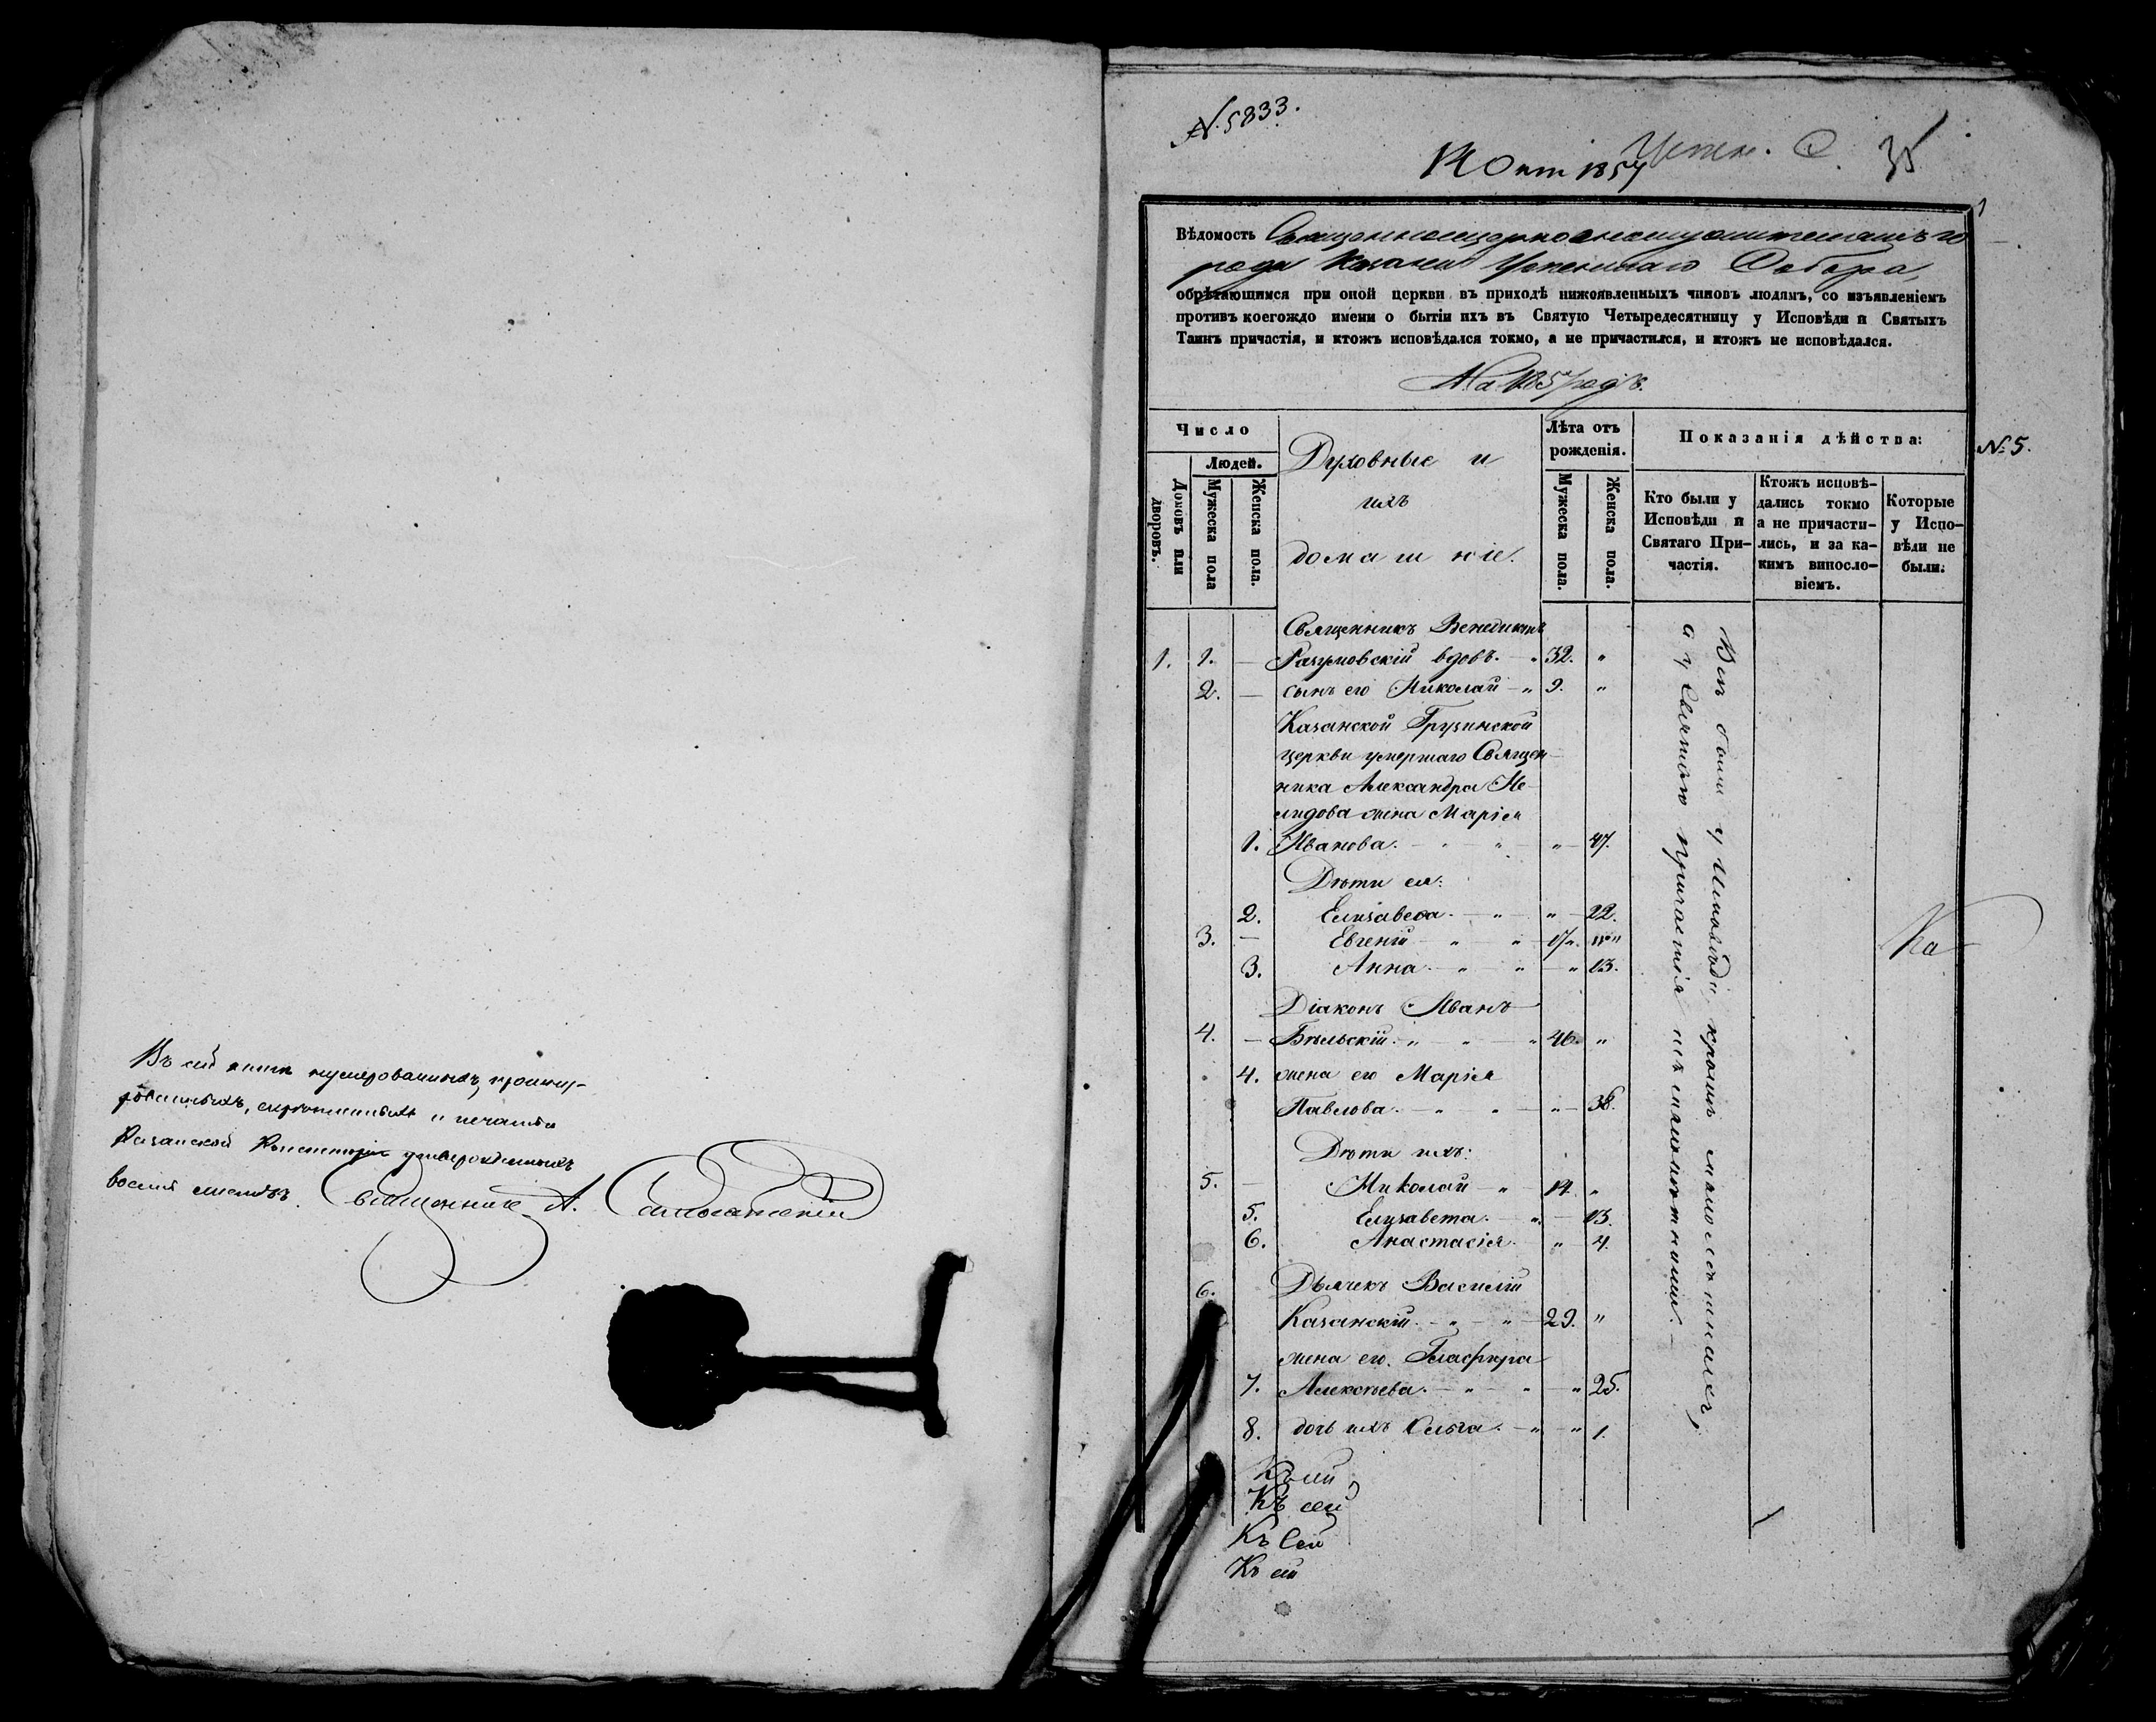 Въ сей книгѣ нумерованныхъ, прошну-
рованныхъ, скрѣпленныхъ и печатью
Казанской Консисторіи утвержденныхъ
восемь листовъ. Священникъ А.
N. 5833.
Успен. С.
14 Окт 1857
35
1
Вѣдомость Священноцерковнослужителямъ го
рода Казани Успенскаго Собора,
обрѣтающимся при оной церкви въ приходѣ нижоявленныхъ чиновъ людямъ, со изъявленіемъ
противъ коегождо имени о бытіи ихъ въ Святую Четыредесятницу у Исповѣди и Святыхъ
Таинъ причастія, и ктожъ исповѣдался токмо, а не причастился, и ктожъ не исповѣдался.
На 1857 годъ.
Число
Людей.
Домовъ или дворовъ.
Мужеска пола
Женска пола.
Духовные и
ихъ
домашніе.
Лѣта отъ
рожденія.
Мужеска пола.
Женска пола.
Показанія дѣйства:
Кто были у
Исповѣди и
Святаго При-
частія.
Ктожъ исповѣ-
дались токмо
а не причасти-
лись, и за ка-
кимъ виносло-
віемъ.
Которые
у Испо-
вѣди не
были.
№ 5.
Священникъ Венедиктъ
1. 1. — Разумовскій вдовъ. — „ 32. „
2. — сынъ его Николай — „ 9. „
Казанской Грузинской
церкви умершаго Священ-
ника Александра Не-
лидова жена Марія
1. Иванова. — „ — „ „ — 47.
Дѣти ея:
2. Елизавета. — „ — „ — 22.
3. — Евгеній — „ — „ 17. „
3. Анна — „ — „ — „ 13.
Діаконъ Иванъ
4. — Бѣльскій. „ — „ — „ 46. „
4. жена его Марія
Павлова. — „ — „ — „ — 38.
Дѣти ихъ:
5. — Николай — „ — 14. „
5. Елизавета. — „ — 13.
6. Анастасія. „ — 4.
6. Дьячекъ Василій
Казанскій. — „ — „ — 29. „
жена его. Глафира
7. Алексѣева. — „ — „ — „ 25.
8. дочь ихъ Ольга. — „ — „ 1.
Всѣ были у Исповѣди, кромѣ малолѣтнихъ,
а у Святаго причастія съ малолѣтними. —
Ка
Къ сей
Къ сей
Къ Сей
Къ сей